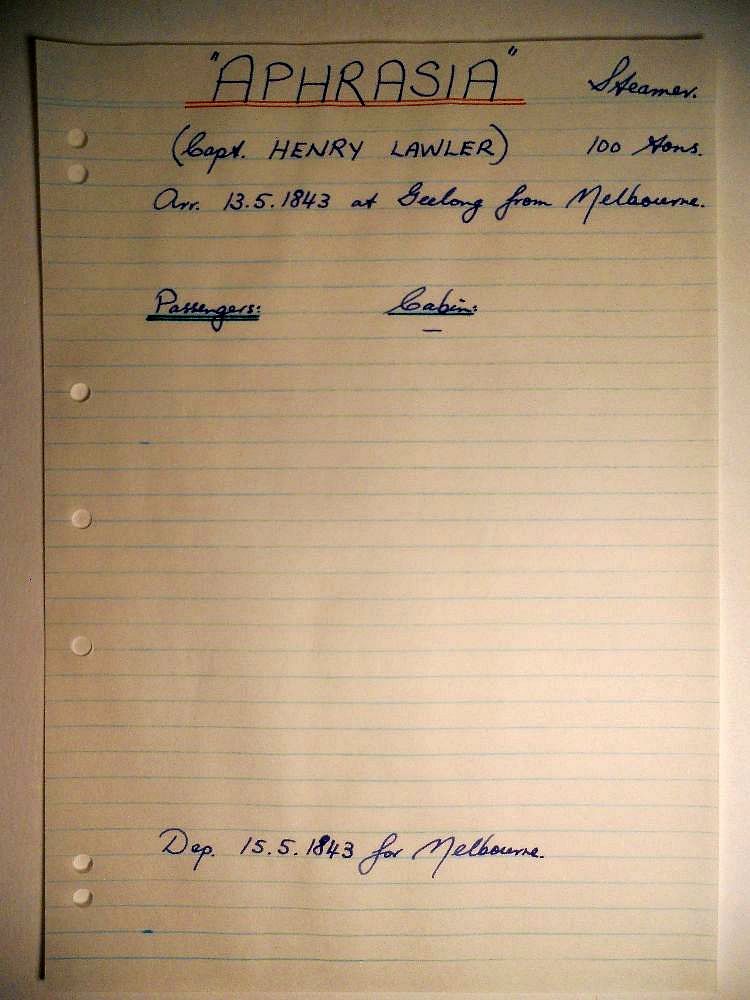 "APHRASIA" Steamer.
(Capt. HENRY LAWLER) 100 tons.
Arr. 13.5.1843 at Geelong from Melbourne.
Passengers: Cabin:
—
Dep. 15.5.1843 for Melbourne.